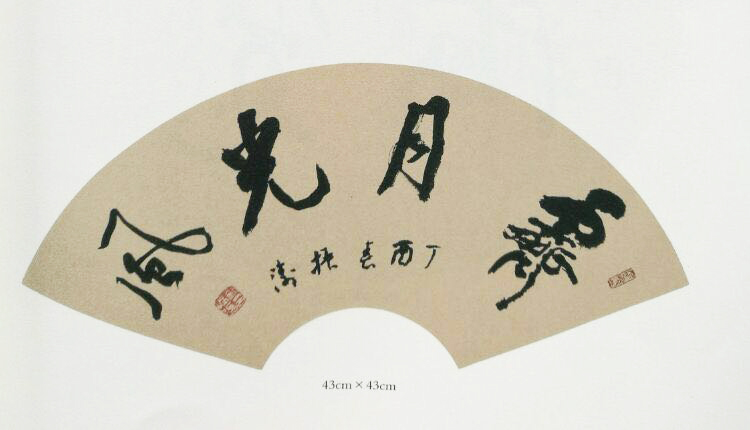 霽月光風
丁酉春振濤
43cm×43cm